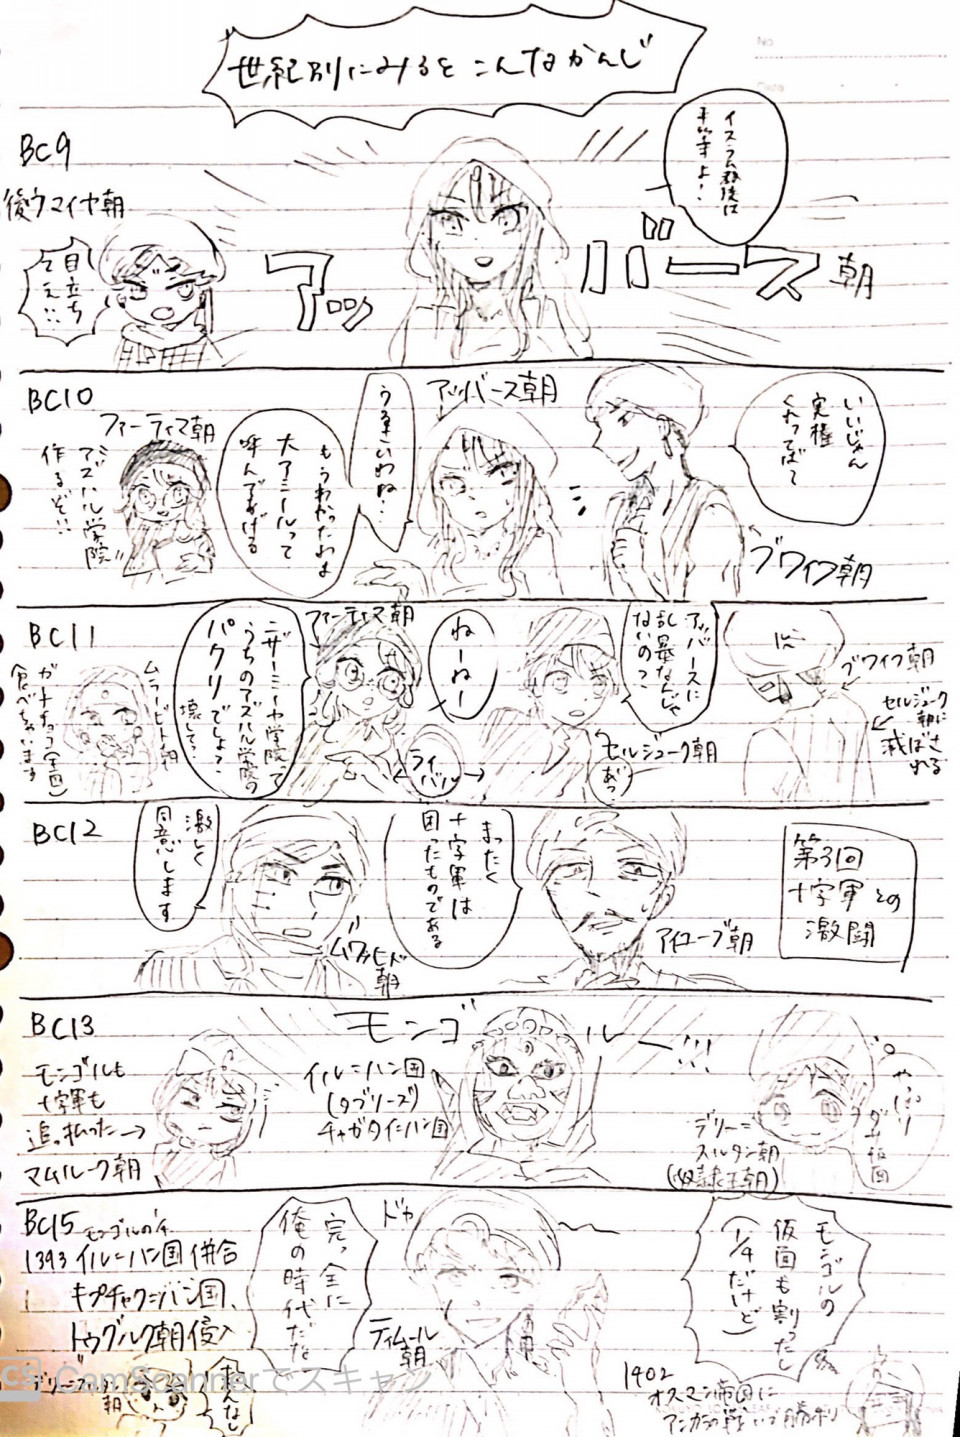 世紀別にみるとこんなかんじ
BC9
イスラム教徒は
平等よ！
後ウマイヤ朝
目立ち
アッバース朝
BC10
アッバース朝
いいじゃん
実権
くれってばって
うるさいわね…
もうわかったわよ
大アミールって
呼んであげる
ファーティマ朝
アズハル学院
作るぞ!!
ブワイフ朝
BC11
ブワイフ朝
セルジューク
朝に
滅ぼさ
れる
アッバースに
乱暴なんじゃ
ないの？
セルジューク朝
あっ
ねーねー
ファーティマ朝
ライバル
ニザーミーヤ学院って
うちのアズハル学院の
パクリでしょ？
壊して？
ムラービト朝
ガーナチョコ(金面)
食べちゃいます
BC12
第3回
十字軍との
激闘
まったく
十字軍は
困ったものである
アイユーブ朝
激しく
同意します
ムワッヒド
朝
BC13
モンゴルー!!!
やっぱり
デリー=
スルタン朝
(奴隷王朝)
イル=ハン国
(タブリーズ)
チャガタイ=ハン国
モンゴルも
十字軍も
追っ払った→
マムルーク朝
BC15
モンゴルの
仮面も割ったし
(1/4だけど)
ドカ
完っ全に
俺の時代だな
ティムール
朝
1393 イル=ハン国 併合
キプチャク=ハン国、
トゥグルク朝侵入
朝
1402
オスマン帝国に
アンカラの戦いで勝利
CamScannerでスキャン